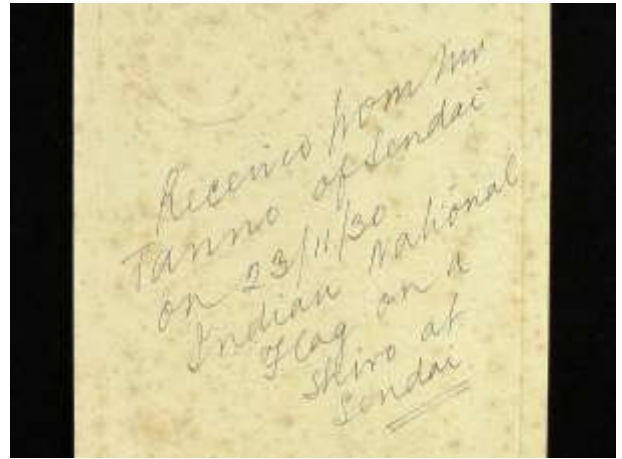 Received from Mr
Tanno of Sendai
on 23/11/30
Indian National
Flag on a
Shiro at
Sendai